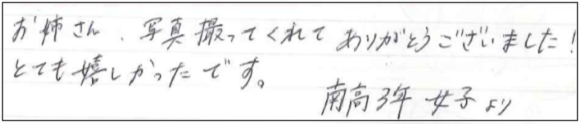 お姉さん、写真撮ってくれて ありがとうございました!
とても嬉しかったです。
南高3年 女子より